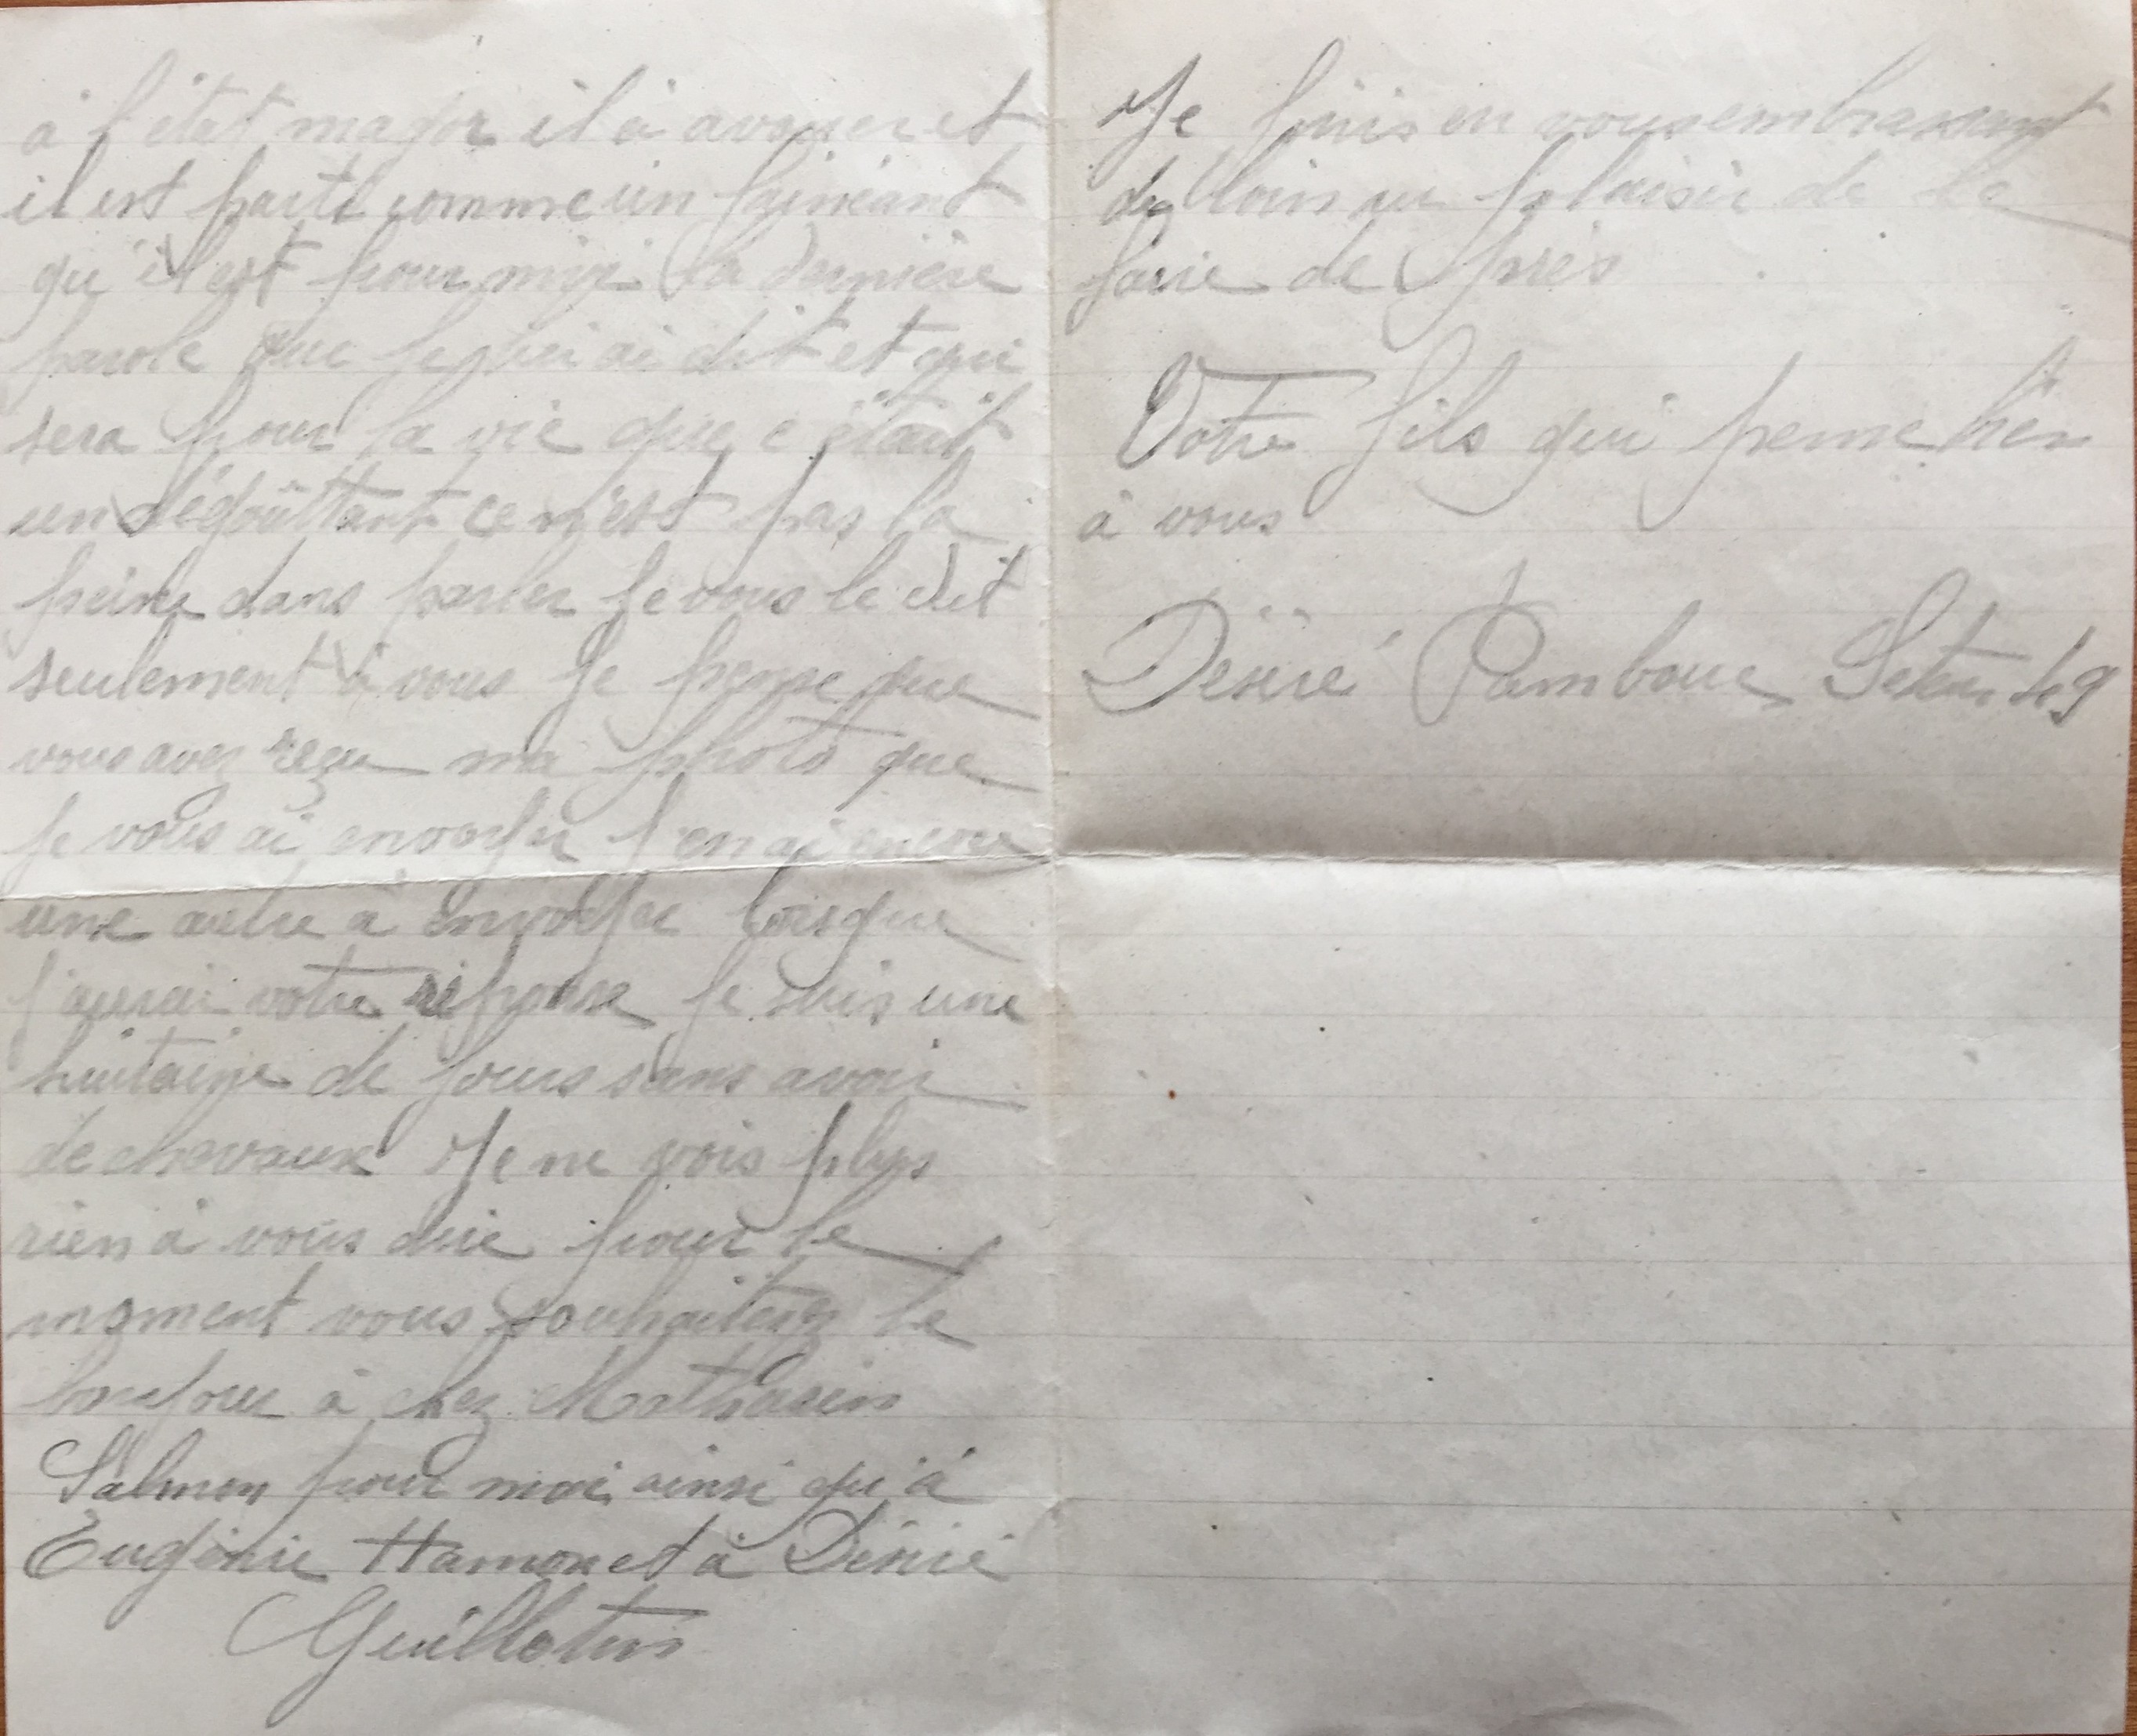 à l'état major il à avouer et
il est parti comme un fainéant
qu'il est pour moi la dernière
parole que je lui ai dit et qui
sera pour la vie que c'était
un dégoûttant ce n'est pas la
peine dans parler je vous le dit
seulement à vous Je pense que
vous avez reçu ma photo que
je vous ai envoyer j'en ai encore
une autre à envoyer lorsque
j'aurai votre réponse je suis une
huitaine de jours sans avoir
de chevaux Je ne vois plus
rien à vous dire pour le
moment vous souhaiterez le
bonjour à chez Mathurin
Salmon pour moi ainsi qu'à
Eugénie Hamon et à Désiré
Guillotin
Je finis en vous embrassant
de loin au plaisir de le
faire de près
Votre fils qui pense bien
à vous
Désiré